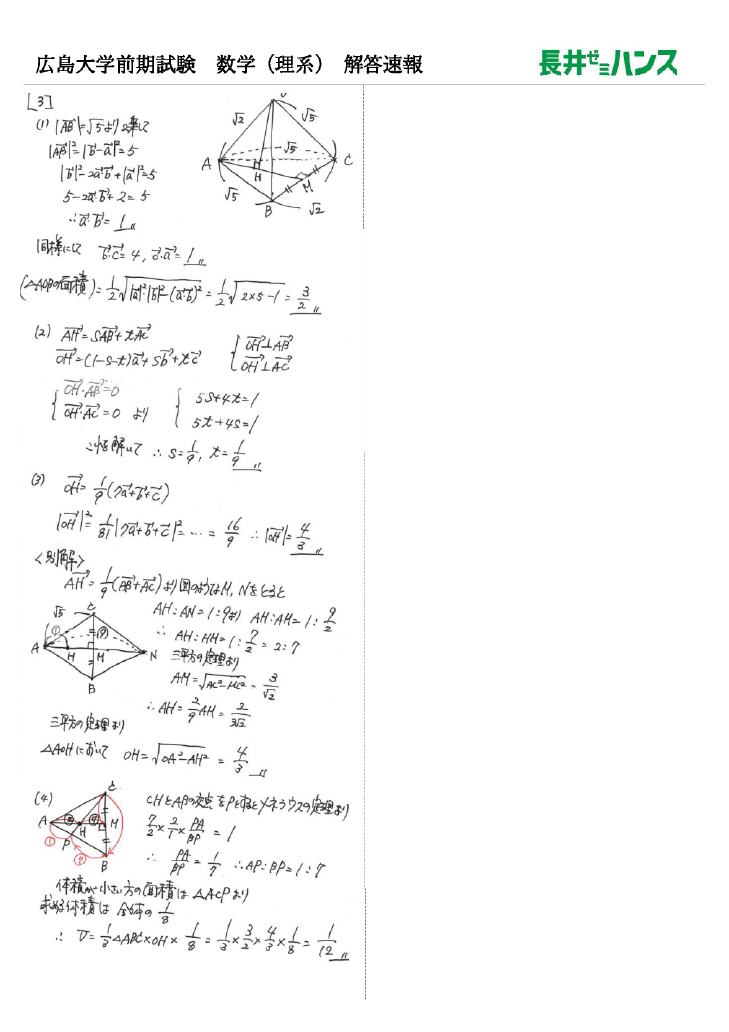 広島大学前期試験 数学（理系） 解答速報
長井ゼミハンス
[3]
(1) |AB→|=√5より2乗して
|AB→|²=|b→-a→|²=5
|b→|²-2a→・b→+|a→|²=5
5-2a→・b→+2=5
∴a→・b→=1
同様にして b→・c→=4, c→・a→=1
(△AOBの面積)=1/2√(|a→|²|b→|²-(a→・b→)²)=1/2√(2×5-1)=3/2
√2 √5
A √5 C
H
H
M
√5 B √2
(2) AH→=sAB→+tAC→
OH→=(1-s-t)a→+sb→+tc→ { OH→⊥AB→
OH→⊥AC→
{ OH→・AB→=0
OH→・AC→=0 より { 5s+4t=1
5t+4s=1
これを解いて ∴ s=1/9, t=1/9
(3) OH→=1/9(7a→+b→+c→)
|OH→|²=1/81|7a→+b→+c→|²=…=16/9 ∴|OH→|=4/3
<別解>
AH→=1/9(AB→+AC→)より図のようにM, Nをとると
AH:AN=1:9より AH:AM=1:9/2
∴ AH:HM=1:7/2=2:7
三平方の定理より
AM=√(AC²-MC²)=3/√2
∴AH=2/9AM=2/3√2
√5 C
① ⑨
A H M N
B
三平方の定理より
△AOHにおいて OH=√(OA²-AH²)=4/3
(4) CHとABの交点をPとするとメネラウスの定理より
7/2×2/1×PA/BP=1
∴ PA/BP=1/7 ∴AP:BP=1:7
C
A ② ⑦ M
H
① P
⑦ B
体積が小さい方の面積は△ACPより
求める体積は全体の1/8
∴ V=1/3△ABC×OH×1/8=1/3×3/2×4/3×1/8=1/12